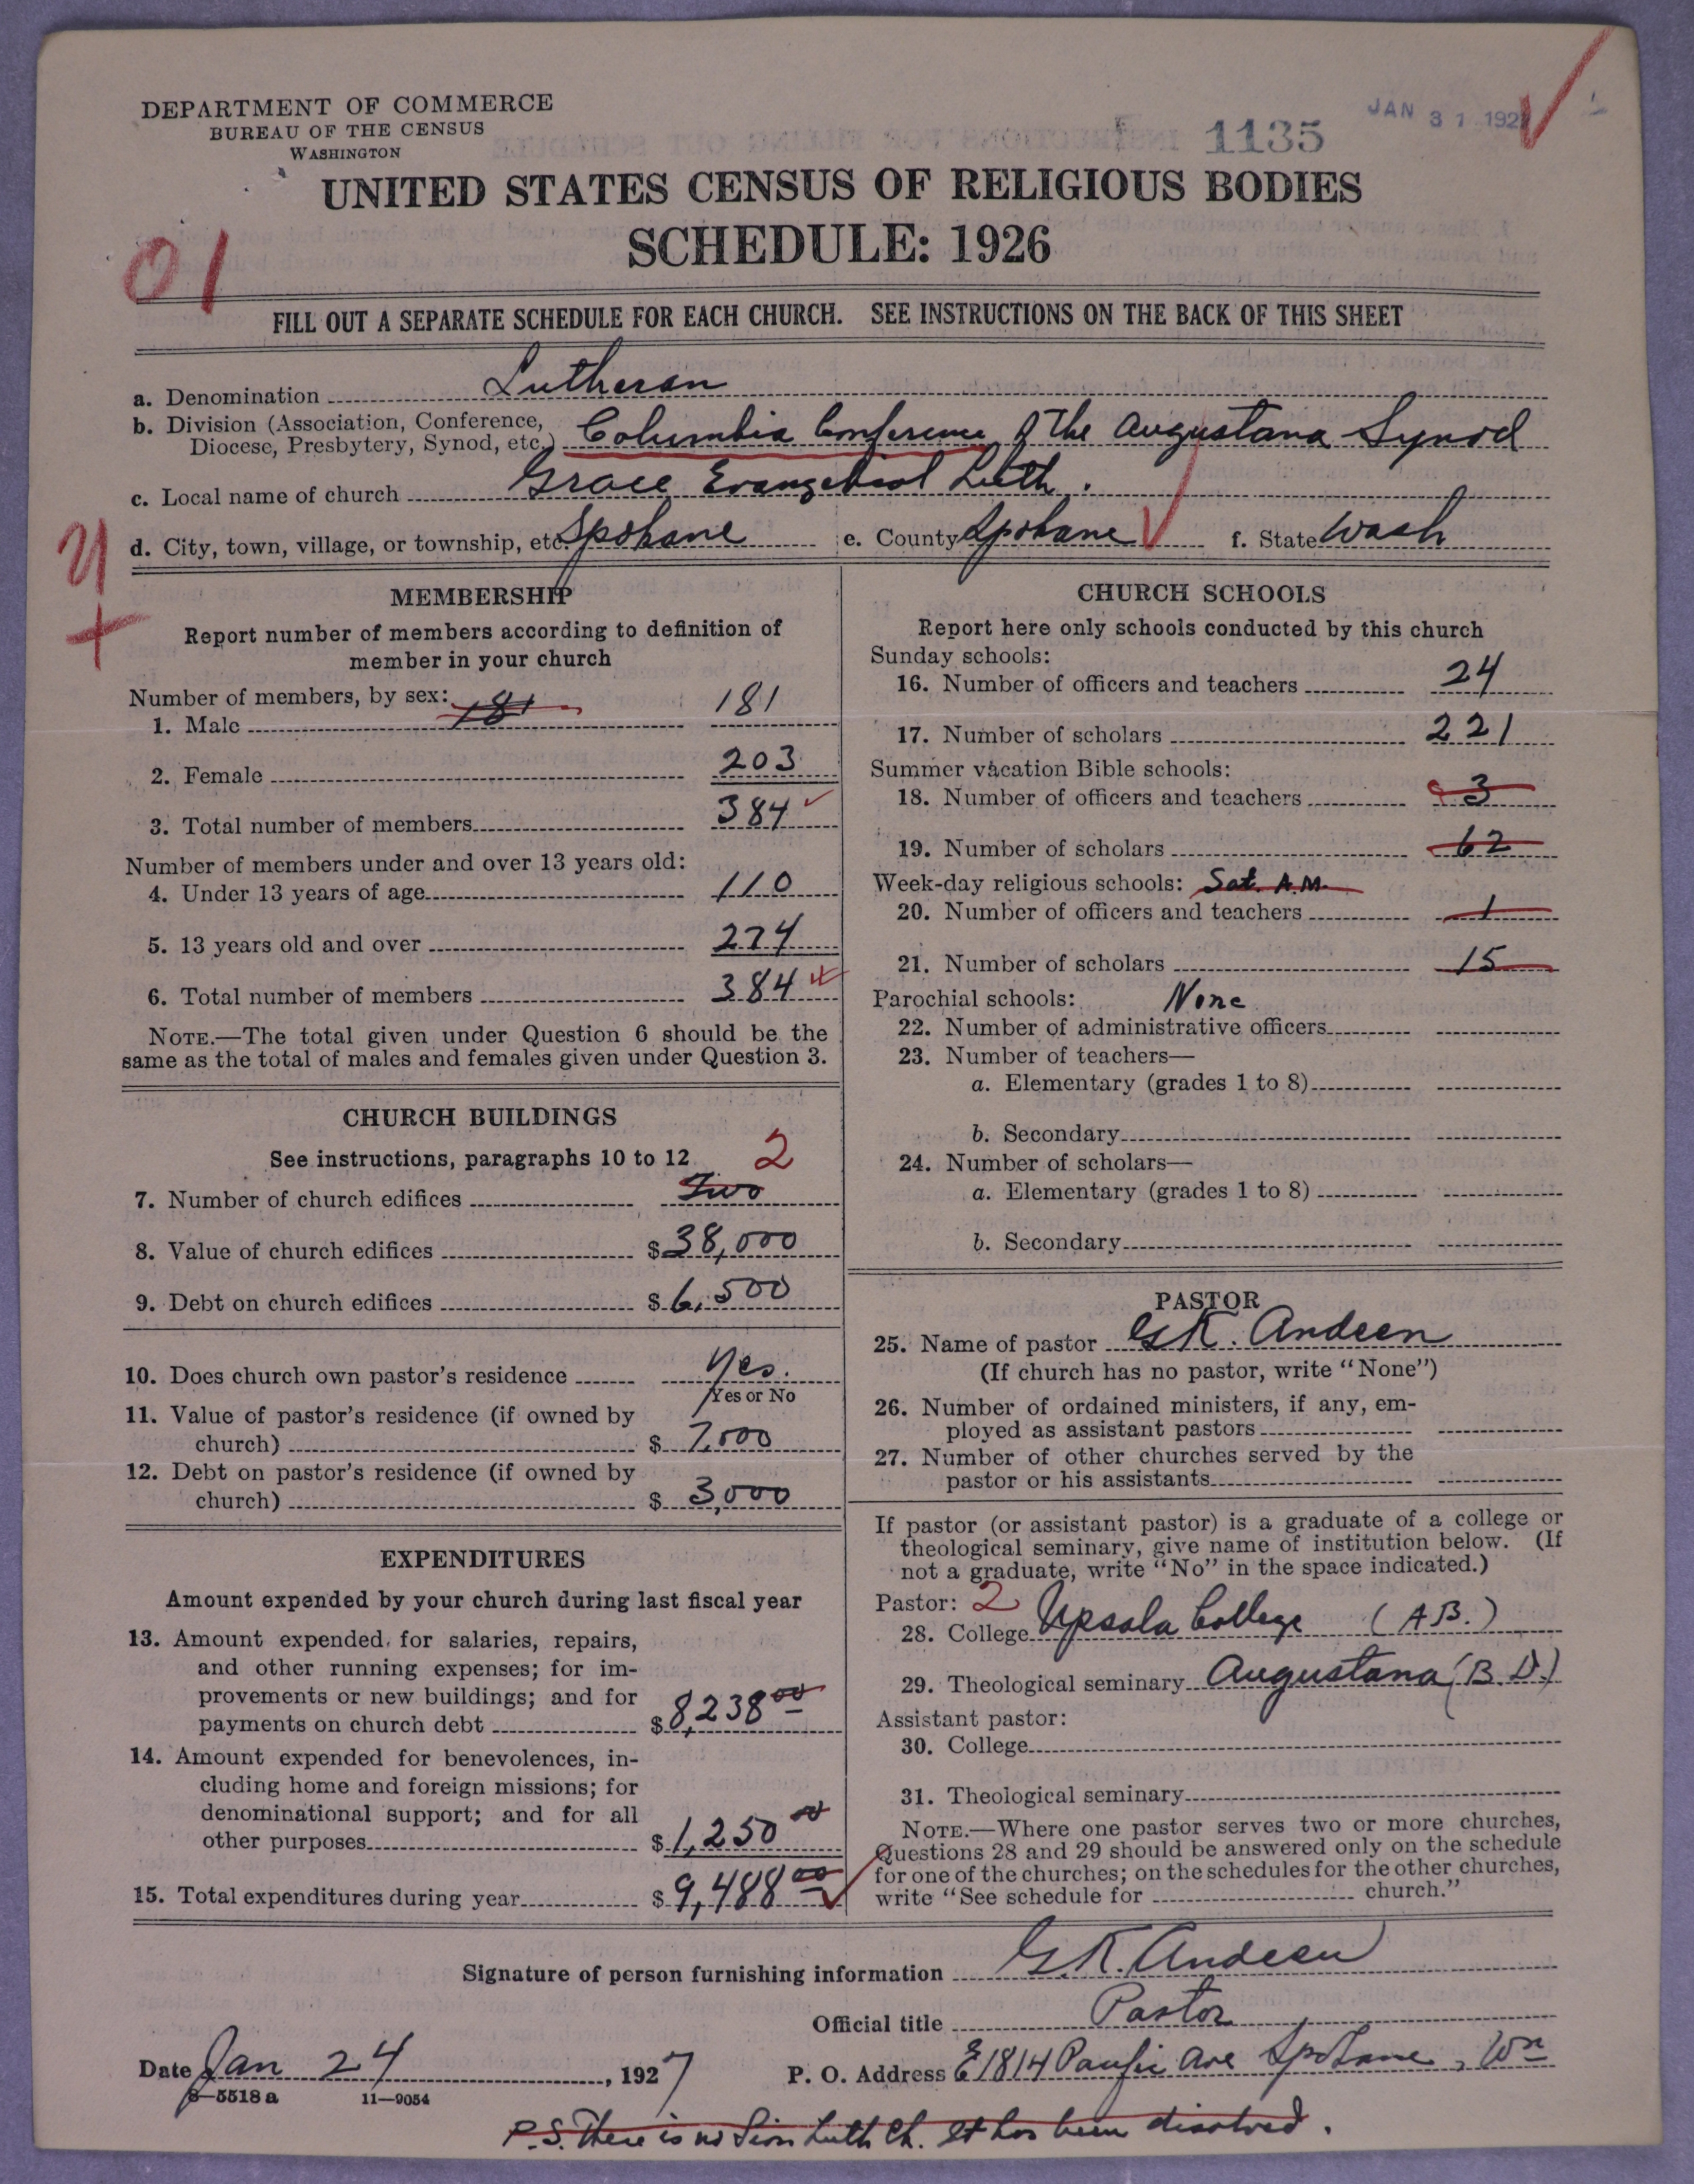 DEPARTMENT OF COMMERCE
BUREAU OF THE CENSUS
WASHINGTON
1135
JAN 31 192
UNITED STATES CENSUS OF RELIGIOUS BODIES
SCHEDULE: 1926
01
FILL OUT A SEPARATE SCHEDULE FOR EACH CHURCH. SEE INSTRUCTIONS ON THE BACK OF THIS SHEET
a. Denomination Lutheran
b. Division (Association, Conference,
Diocese, Presbytery, Synod, etc.) Columbia Conference of the Augustana Synod
c. Local name of church Grace Evangelical Luth.
d. City, town, village, or township, etc. Spokane e. County Spokane f. State Wash
MEMBERSHIP
Report number of members according to definition of
member in your church
Number of members, by sex:
1. Male 181 181
2. Female 203
3. Total number of members 384
Number of members under and over 13 years old:
4. Under 13 years of age 110
5. 13 years old and over 274
6. Total number of members 384
NOTE.—The total given under Question 6 should be the
same as the total of males and females given under Question 3.
CHURCH BUILDINGS
See instructions, paragraphs 10 to 12 2
7. Number of church edifices Two
8. Value of church edifices $38,000
9. Debt on church edifices $6,500
10. Does church own pastor's residence Yes.
Yes or No
11. Value of pastor's residence (if owned by
church) $7,000
12. Debt on pastor's residence (if owned by
church) $3,000
EXPENDITURES
Amount expended by your church during last fiscal year
13. Amount expended for salaries, repairs,
and other running expenses; for im-
provements or new buildings; and for
payments on church debt $8,238 00
14. Amount expended for benevolences, in-
cluding home and foreign missions; for
denominational support; and for all
other purposes $1,250 00
15. Total expenditures during year $9,488 00
CHURCH SCHOOLS
Report here only schools conducted by this church
Sunday schools:
16. Number of officers and teachers 24
17. Number of scholars 221
Summer vacation Bible schools:
18. Number of officers and teachers 3
19. Number of scholars 62
Week-day religious schools: Sat. A.M.
20. Number of officers and teachers 1
21. Number of scholars 15
Parochial schools: None
22. Number of administrative officers
23. Number of teachers—
a. Elementary (grades 1 to 8)
b. Secondary
24. Number of scholars—
a. Elementary (grades 1 to 8)
b. Secondary
PASTOR
25. Name of pastor G.K. Andeen
(If church has no pastor, write "None")
26. Number of ordained ministers, if any, em-
ployed as assistant pastors
27. Number of other churches served by the
pastor or his assistants
If pastor (or assistant pastor) is a graduate of a college or
theological seminary, give name of institution below. (If
not a graduate, write "No" in the space indicated.)
Pastor: 2
28. College Upsala College (A.B.)
29. Theological seminary Augustana (B.D.)
Assistant pastor:
30. College
31. Theological seminary
NOTE.—Where one pastor serves two or more churches,
Questions 28 and 29 should be answered only on the schedule
for one of the churches; on the schedules for the other churches,
write "See schedule for church."
Signature of person furnishing information G.K. Andeen
Official title Pastor
Date Jan 24, 1927 P. O. Address E1814 Pacific Ave Spokane, Wn
8—5518 a 11—9054
P.S. There is no Zion Luth Ch. It has been disolved.